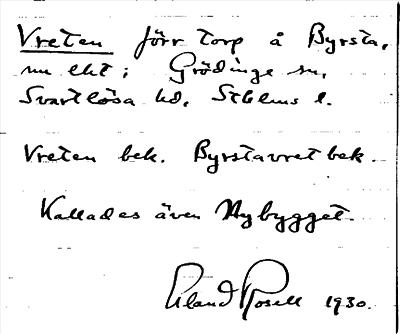 Vreten förr torp å Byrsta,
nu lht i Grödinge sn,
Svartlösa hd, Sthlms l.
Vreten bek. Byrstavret bek.
Kallades även Nybygget.
Erland Rosell 1930.